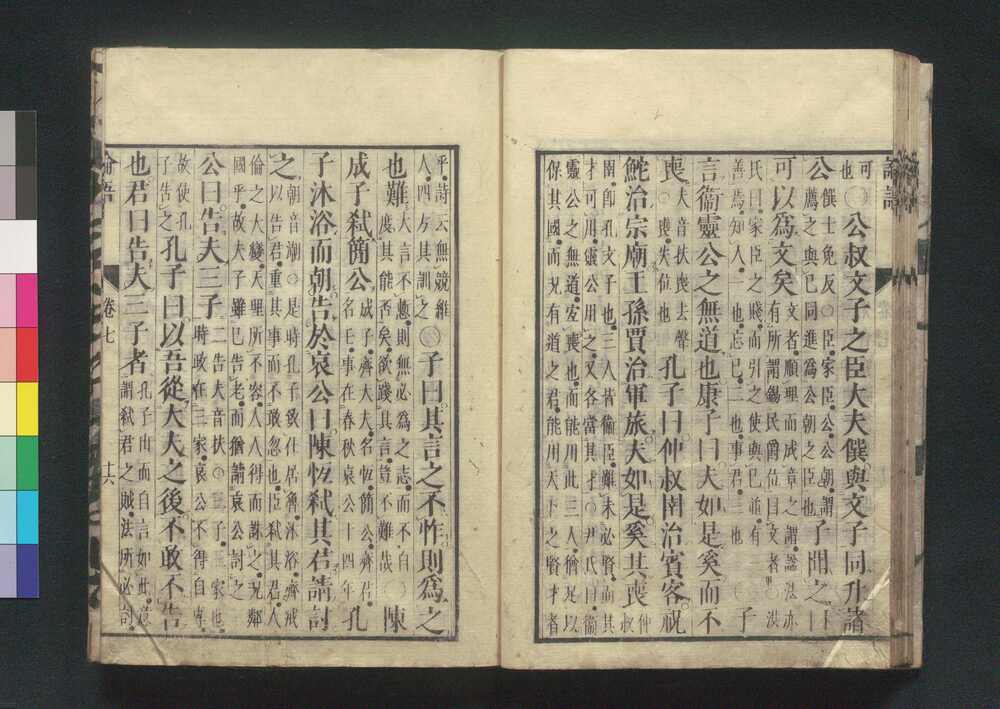 論語
可
也
○公叔文子之臣大夫僎與文子同升諸
公
僎士免反○臣家臣公公朝謂
薦之與己同進爲公朝之臣也
子聞之
可以爲文矣
文者順理而成章之謂謚法亦
有所謂錫民爵位曰文者○洪
氏曰家臣之賤而引之使與己並有
善焉知人一也忘己二也事君三也
○子
言衞靈公之無道也康子曰夫如是奚而不
喪
夫音扶喪去聲
○喪失位也
孔子曰仲叔圉治賓客祝
鮀治宗廟王孫賈治軍旅夫如是奚其喪
仲
叔
圉即孔文子也三人皆衞臣雖未必賢而其
才可用靈公用之又各當其才○尹氏曰衞
靈公之無道宜喪也而能用此三人猶足以
保其國而況有道之君能用天下之賢才者
乎詩云無競維
人四方其訓之
○子曰其言之不怍則爲之
也難
大言不慙則無必爲之志而不自
度其能否矣欲踐其言豈不難哉
○陳
成子弒簡公
成子齊大夫名恆簡公齊君
名壬事在春秋哀公十四年
孔
子沐浴而朝告於哀公曰陳恆弒其君請討
之
朝音潮○是時孔子致仕居魯沐浴齊戒
以告君重其事而不敢忽也臣弒其君人
倫之大變天理所不容人人得而誅之況鄰
國乎故夫子雖已告老而猶請哀公討之
公曰告夫三子
二告夫音扶○三子三家也
時政在三家哀公不得自專
故使孔
子告之
孔子曰以吾從大夫之後不敢不告
也君曰告夫三子者
孔子出而自言如此意
謂弒君之賊法所必討
論語 卷七 十六